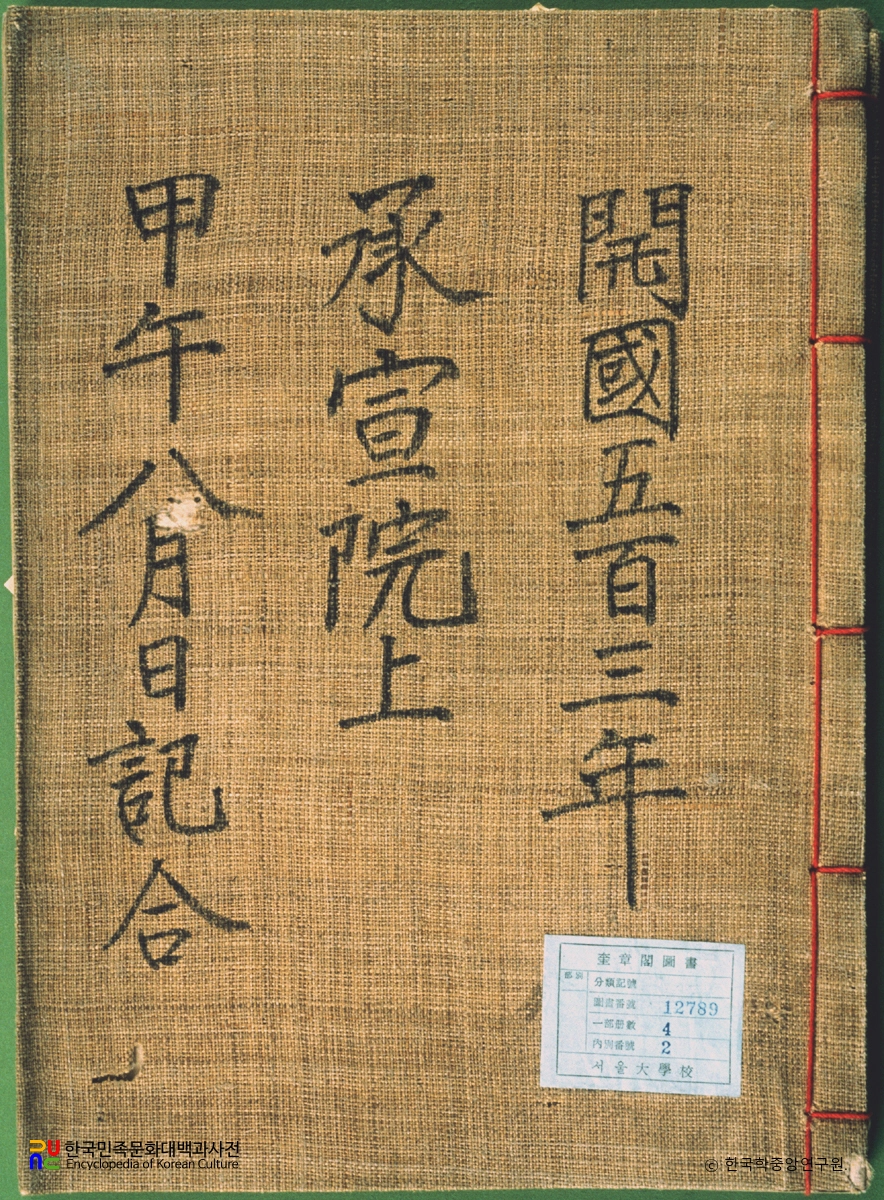 開國五百三年
承宣院上
甲午八月日記合
奎章閣圖書
部別
分類記號
圖書番號 12789
一部册數 4
內別番號 2
서울大學校
한국민족문화대백과사전
Encyclopedia of Korean Culture
© 한국학중앙연구원